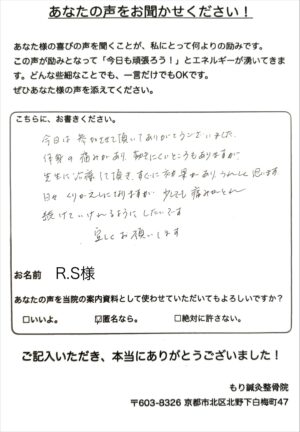 あなたの声をお聞かせください！
あなた様の喜びの声を聞くことが、私にとって何よりの励みです。
この声が励みとなって「今日も頑張ろう！」とエネルギーが湧いてきま
す。どんな些細なことでも、一言だけでもOKです。
ぜひあなた様の声を添えてください。
こちらに、お書きください。
今日は 参加させて頂いてありがとうございました。
痛みがあり、動きにくいところもありますが
先生に治療して頂き、すぐに効果があり うれしく思います
日々 くりかえしになりますが 少しでも 痛みがとれ
続けていけれるようにしたいです
宜しくお願いします
お名前 R.S様
あなたの声を当院の案内資料として使わせていただいてもよろしいですか？
□いいよ。 ☑匿名なら。 □絶対に許さない。
ご記入いただき、本当にありがとうございました！
もり鍼灸整骨院
〒603-8326 京都市北区北野下白梅町47